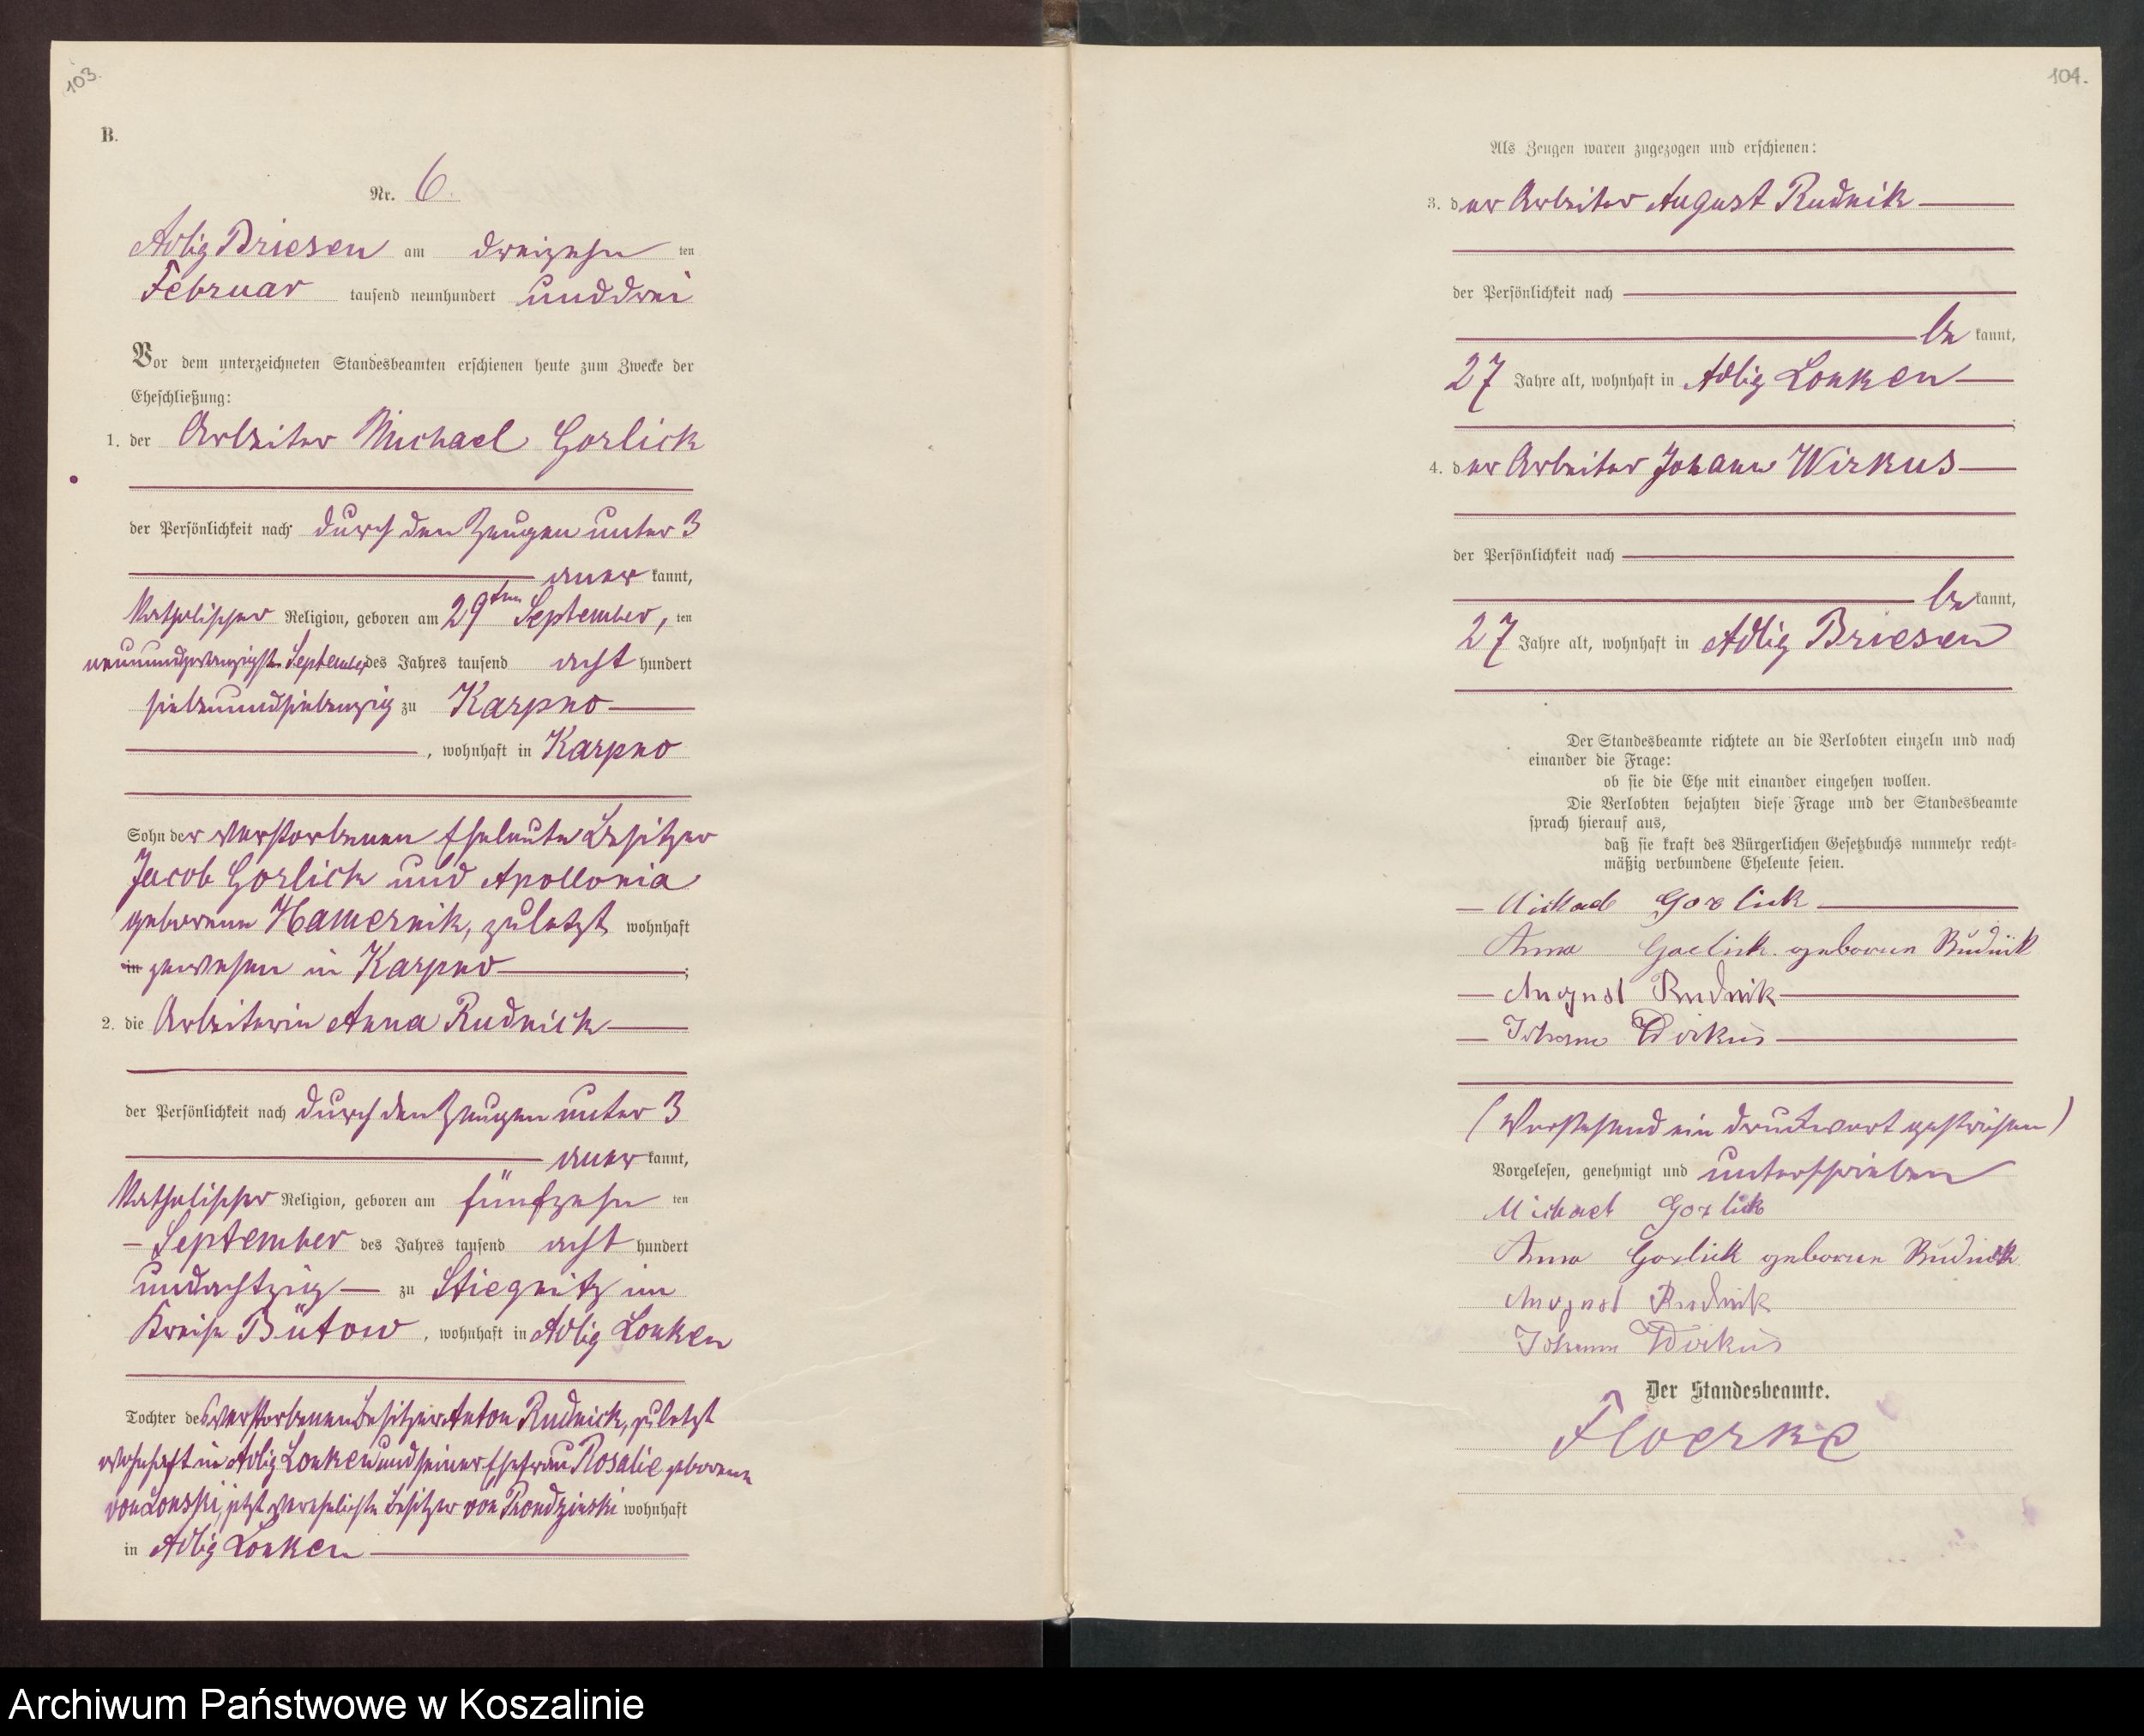 103.
B.
Nr. 6.
Adlig Briesen am dreizehn ten
Februar tausend neunhundert unddrei
Vor dem unterzeichneten Standesbeamten erschienen heute zum Zwecke der
Eheschließung:
1. der Arbeiter Michael Gorlick
der Persönlichkeit nach durch den Zeugen unter 3
aner kannt,
katholischer Religion, geboren am 29ten September, ten
neunundzwanzigsten September des Jahres tausend acht hundert
siebenundsiebenzig zu Karpno
, wohnhaft in Karpno
Sohn der verstorbenen Eheleute Besitzer
Jacob Gorlick und Apollonia
geborene Hamernik, zuletzt wohnhaft
in gewesen in Karpno ;
2. die Arbeiterin Anna Rudnick
der Persönlichkeit nach durch den Zeugen unter 3
aner kannt,
katholischer Religion, geboren am fünfzehn ten
September des Jahres tausend acht hundert
undachtzig zu Stiegnitz im
Kreise Bütow, wohnhaft in Adlig Lonken
Tochter des verstorbenen Besitzers Anton Rudnick, zuletzt
wohnhaft in Adlig Lonken und seiner Ehefrau Rosalie geborene
von Lonski, jetzt verehelichte Besitzer von Prondzinski wohnhaft
in Adlig Lonken
104.
Als Zeugen waren zugezogen und erschienen:
3. der Arbeiter August Rudnik
der Persönlichkeit nach
be kannt,
27 Jahre alt, wohnhaft in Adlig Lonken
;
4. der Arbeiter Johann Wirkus
der Persönlichkeit nach
be kannt,
27 Jahre alt, wohnhaft in Adlig Briesen
Der Standesbeamte richtete an die Verlobten einzeln und nach
einander die Frage:
ob sie die Ehe mit einander eingehen wollen.
Die Verlobten bejahten diese Frage und der Standesbeamte
sprach hierauf aus,
daß sie kraft des Bürgerlichen Gesetzbuchs nunmehr recht-
mäßig verbundene Eheleute seien.
Michael Gorlick
Anna Gorlick geboren Rudnik
August Rudnik
Johann Wirkus
(Vorstehend ein Druckwort gestrichen)
Vorgelesen, genehmigt und unterschrieben
Michael Gorlick
Anna Gorlick geboren Rudnick
August Rudnik
Johann Wirkus
Der Standesbeamte.
Floerke
Archiwum Państwowe w Koszalinie